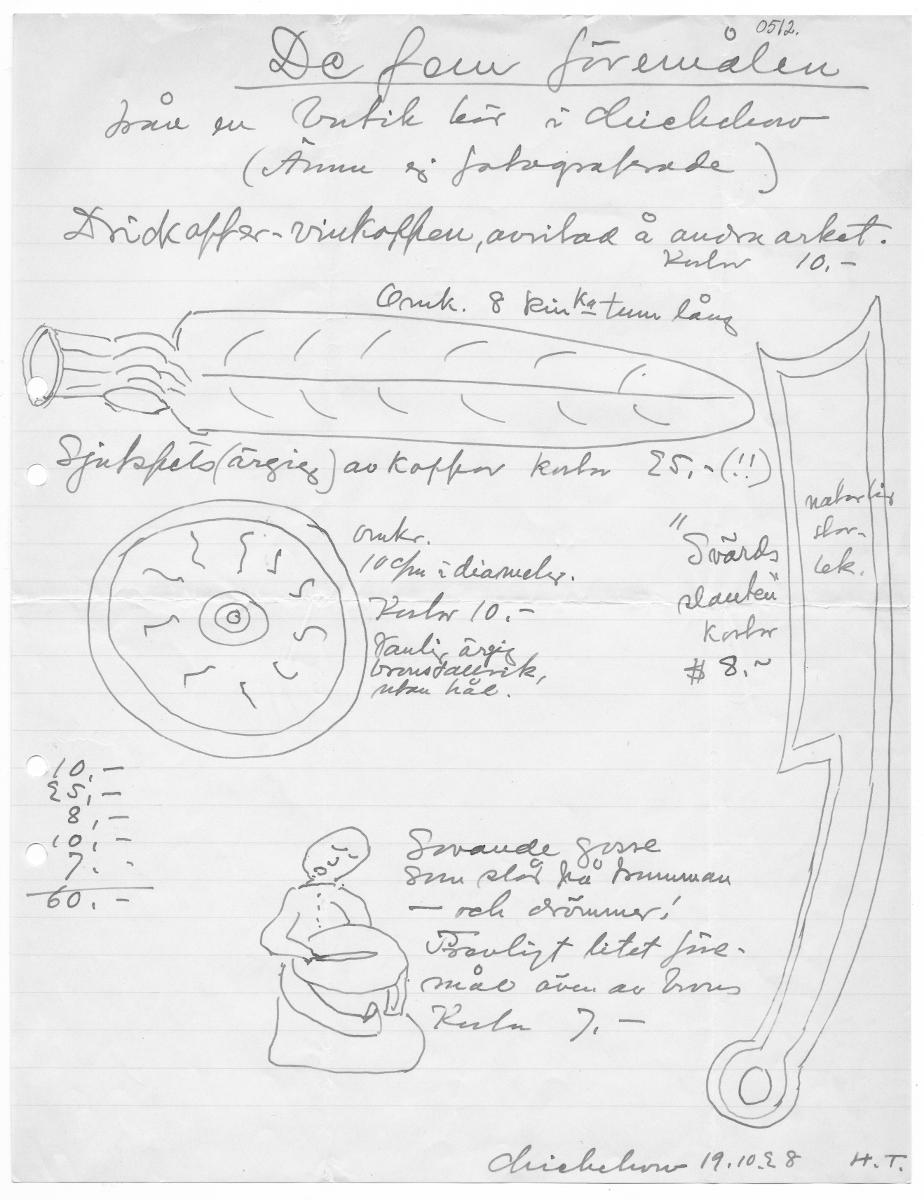 0512.
De fem föremålen
från en butik här i Chiehchow
(Ännu ej fotograferade)
Drickoffer-vinkoppen, avritad å andra arket.
Kostar 10,-
Omk. 8 kinka tum lång
Spjutspets (ärgig) av koppar kostar 25,- (!!)
omkr.
10 c/m i diameter.
Kostar 10.-
Vanlig ärgig
bronstallrik,
utan hål.
"Svärds
slanten"
kostar
$ 8.-
naturlig
stor-
lek.
10,-
25,-
8,-
10,-
7.-
60.-
Sovande gosse
som slår på trumman
- och drömmer!
Travligt litet före-
mål även av brons
Kostar 7.-
Chiehchow 19.10.28 H.T.